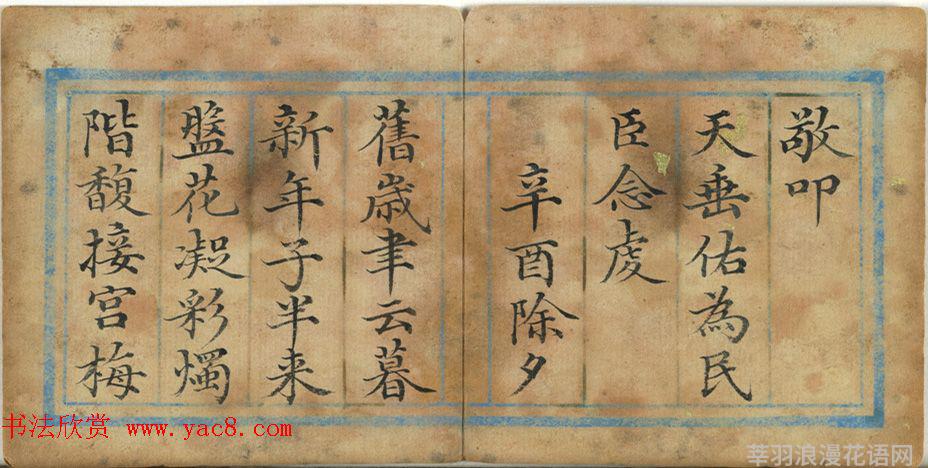 敬叩
天垂佑為民
臣念虔
辛酉除夕
舊歲聿云暮
新年子半来
盤花凝彩燭
階馥接宮梅
书法欣赏 www.yac8.com
莘羽浪漫花语网